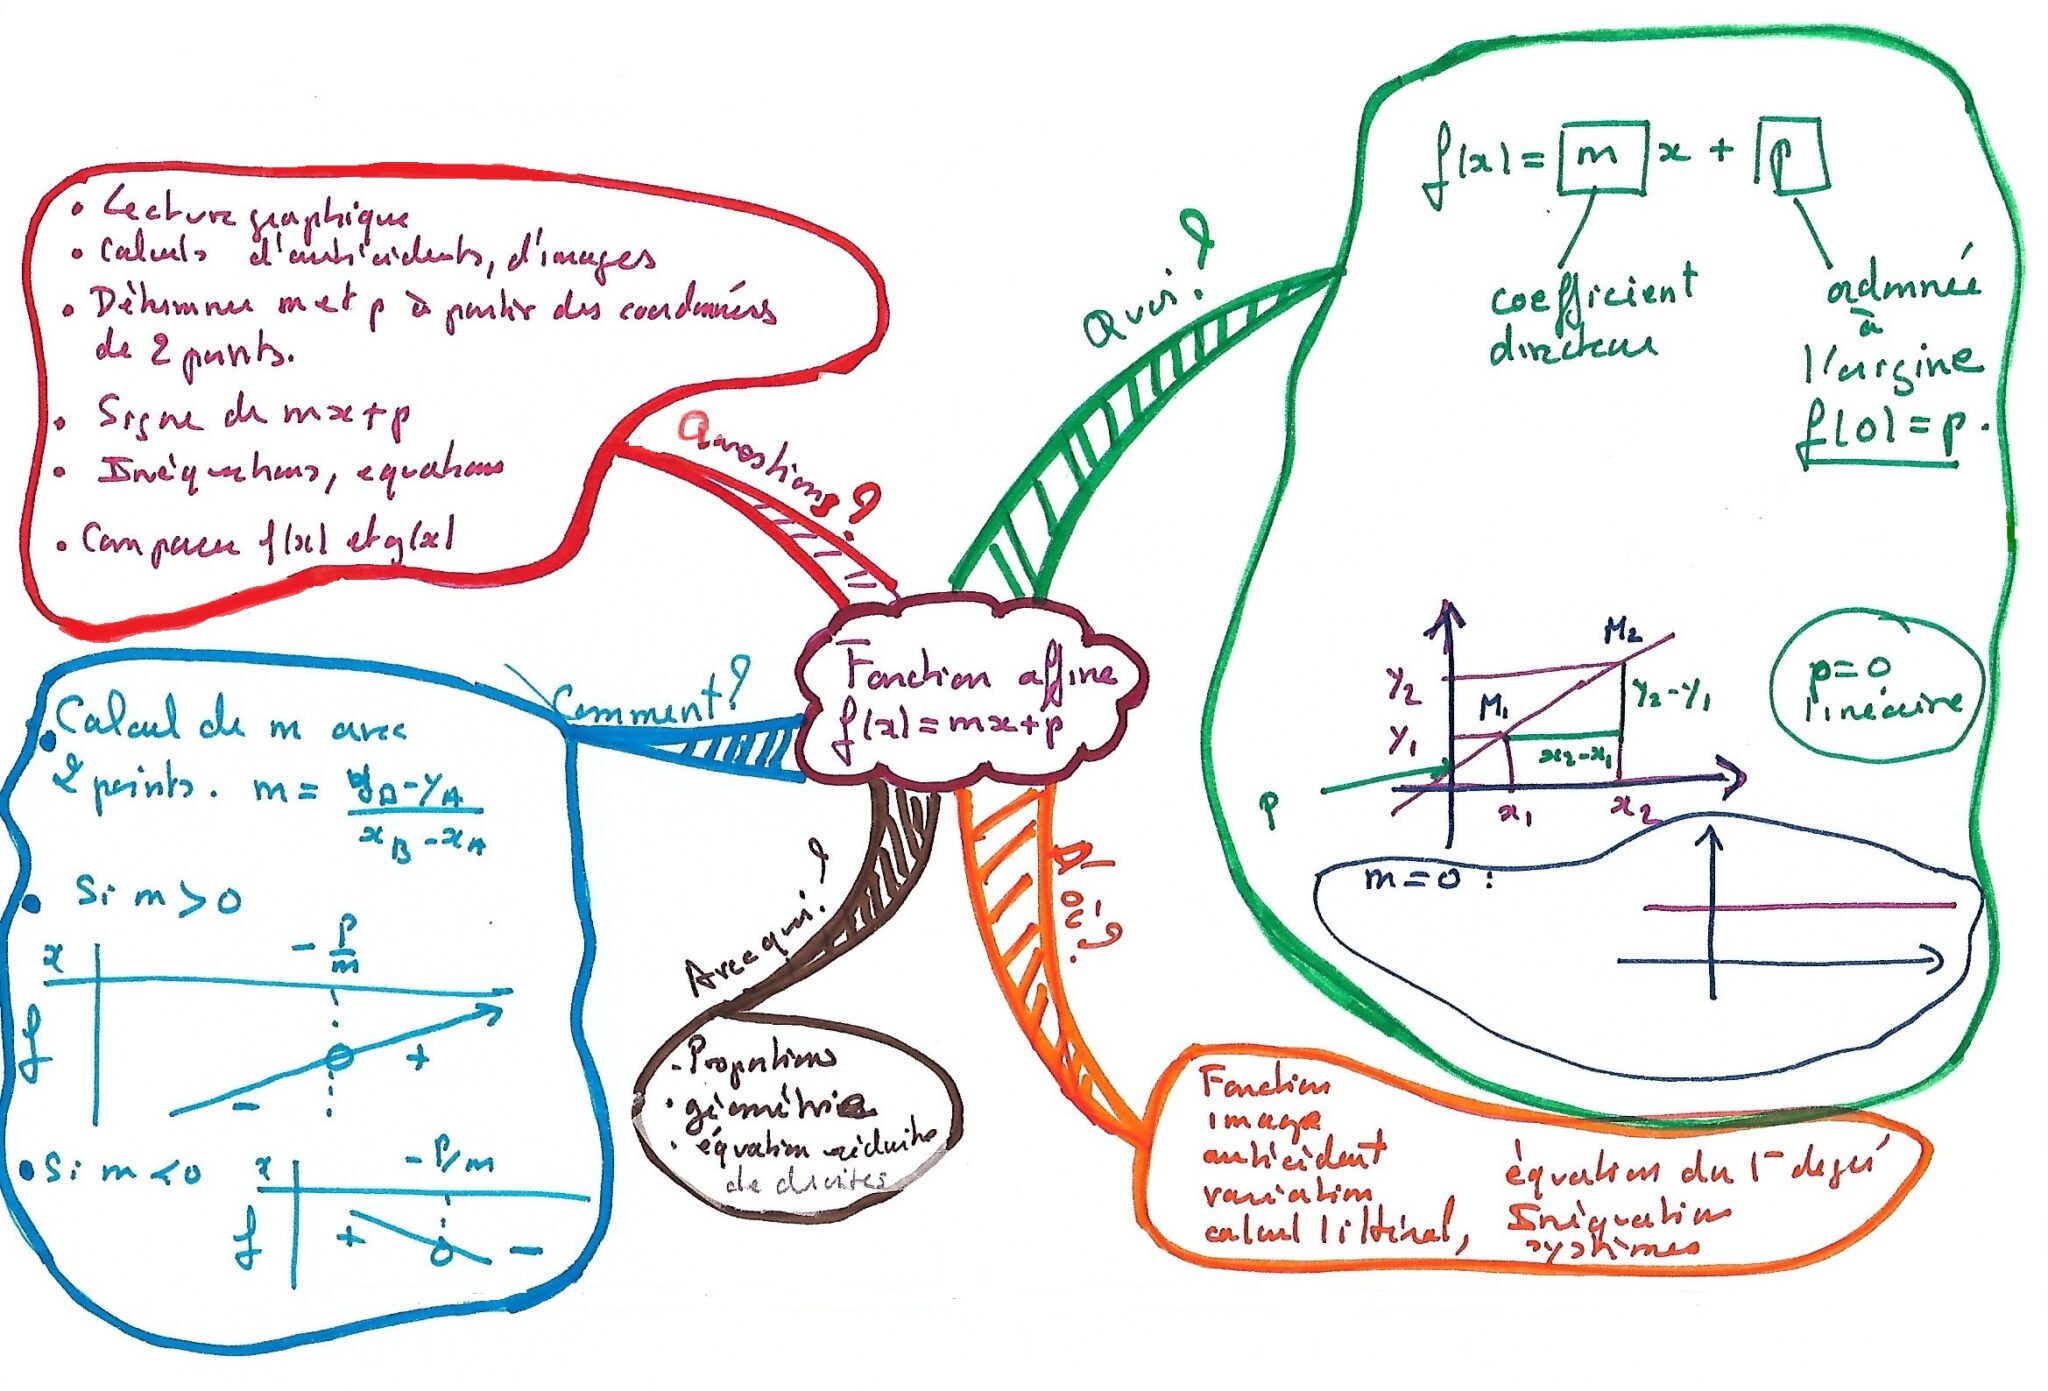 Fonction affine
f(x) = mx+p
Quoi?
f(x) = m x + p
coefficient
directeur
ordonnée
à
l'origine
f(0) = p.
M2
M1
y2
y1
y2-y1
x2-x1
p
x1
x2
p=0
linéaire
m=0 :
Questions?
• Lecture graphique
• Calculs d'antécédents, d'images
• Déterminer m et p à partir des coordonnées
de 2 points.
• Signe de mx+p
• Inéquations, équations
• Comparer f(x) et g(x)
Comment?
• Calcul de m avec
2 points. m = yB-yA / xB-xA
• Si m > 0
x -p/m
f - +
• Si m < 0
x -p/m
f + -
Avec qui?
- Proportions
• géométrie
• équation réduite
de droites
D'où?
Fonction
image
antécédent
variation
calcul littéral,
équation du 1er degré
Inéquation
systèmes